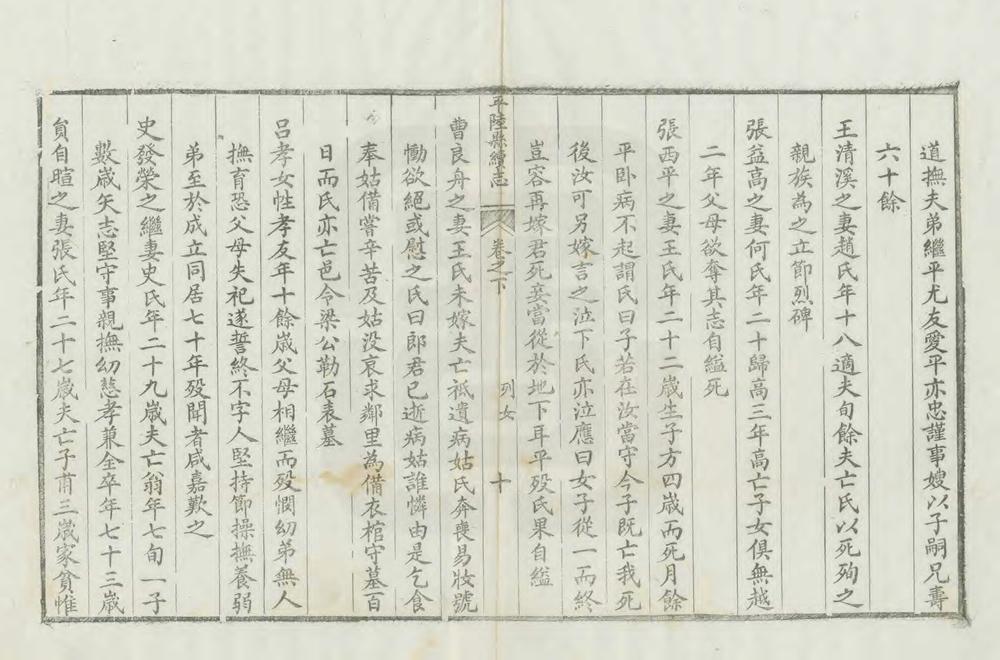 道撫夫弟繼平尤友愛平亦忠謹事嫂以子嗣兄壽
六十餘
王清溪之妻趙氏年十八適夫旬餘夫亡氏以死殉之
親族為之立節烈碑
張益高之妻何氏年二十歸高三年高亡子女俱無越
二年父母欲奪其志自縊死
張西平之妻王氏年二十二歲生子方四歲而死月餘
平卧病不起謂氏曰子若在汝當守今子既亡我死
後汝可另嫁言之泣下氏亦泣應曰女子從一而終
豈容再嫁君死妾當從於地下耳平歿氏果自縊
平陸縣續志
卷之下
列女
十
曹良舟之妻王氏未嫁夫亡祗遺病姑氏奔喪易妝號
慟欲絕或慰之氏曰郎君已逝病姑誰憐由是乞食
奉姑備嘗辛苦及姑没哀求鄰里為備衣棺守墓百
日而氏亦亡邑令梁公勒石表墓
呂孝女性孝友年十餘歲父母相繼而歿憫幼弟無人
撫育恐父母失祀遂誓終不字人堅持節操撫養弱
弟至於成立同居七十年歿聞者咸嘉歎之
史發榮之繼妻史氏年二十九歲夫亡翁年七旬一子
數歲矢志堅守事親撫幼慈孝兼全卒年七十三歲
負自暄之妻張氏年二十七歲夫亡子甫三歲家貧惟